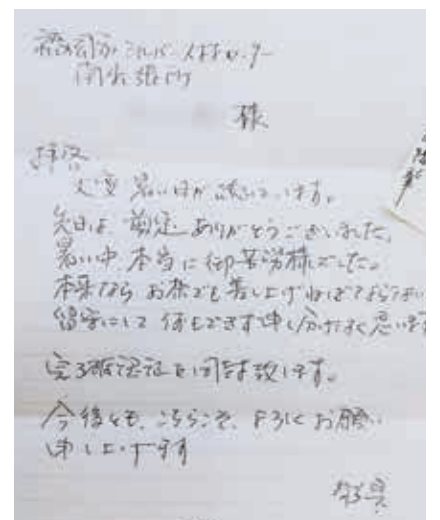 福岡市シルバー人材センター
出張所
様
拝啓
大変 暑い日が続いています。
先日は 剪定 ありがとうございました。
暑い中 本当に御苦労様でした。
本来なら お茶でも差し上げねばならない
留守にして 何もできず申し分けなく思います
完了確認証を同封致します。
今後とも、こちらこそ、よろしくお願い
申し上げます
敬具